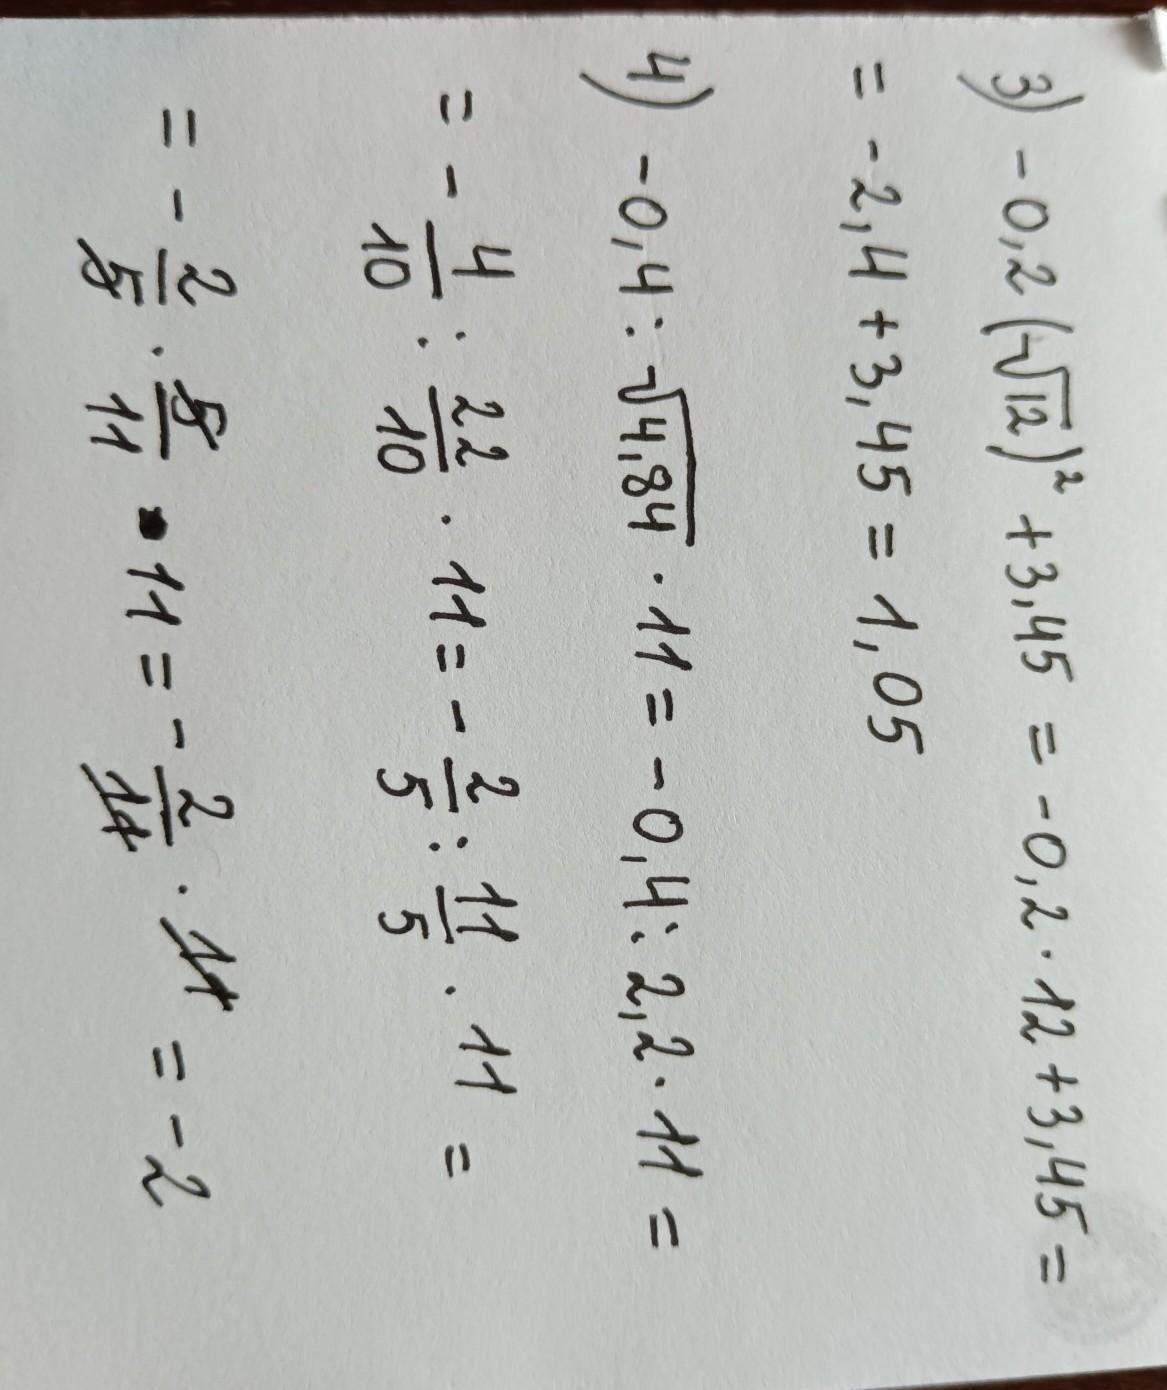 3) -0,2(√12)² +3,45 = -0,2·12+3,45=
= -2,4+3,45=1,05
4) -0,4:√4,84·11=-0,4:2,2·11=
= - 4/10 : 22/10 · 11= - 2/5 : 11/5 · 11 =
= - 2/5 · 5/11 · 11 = - 2/11 · 11 = -2